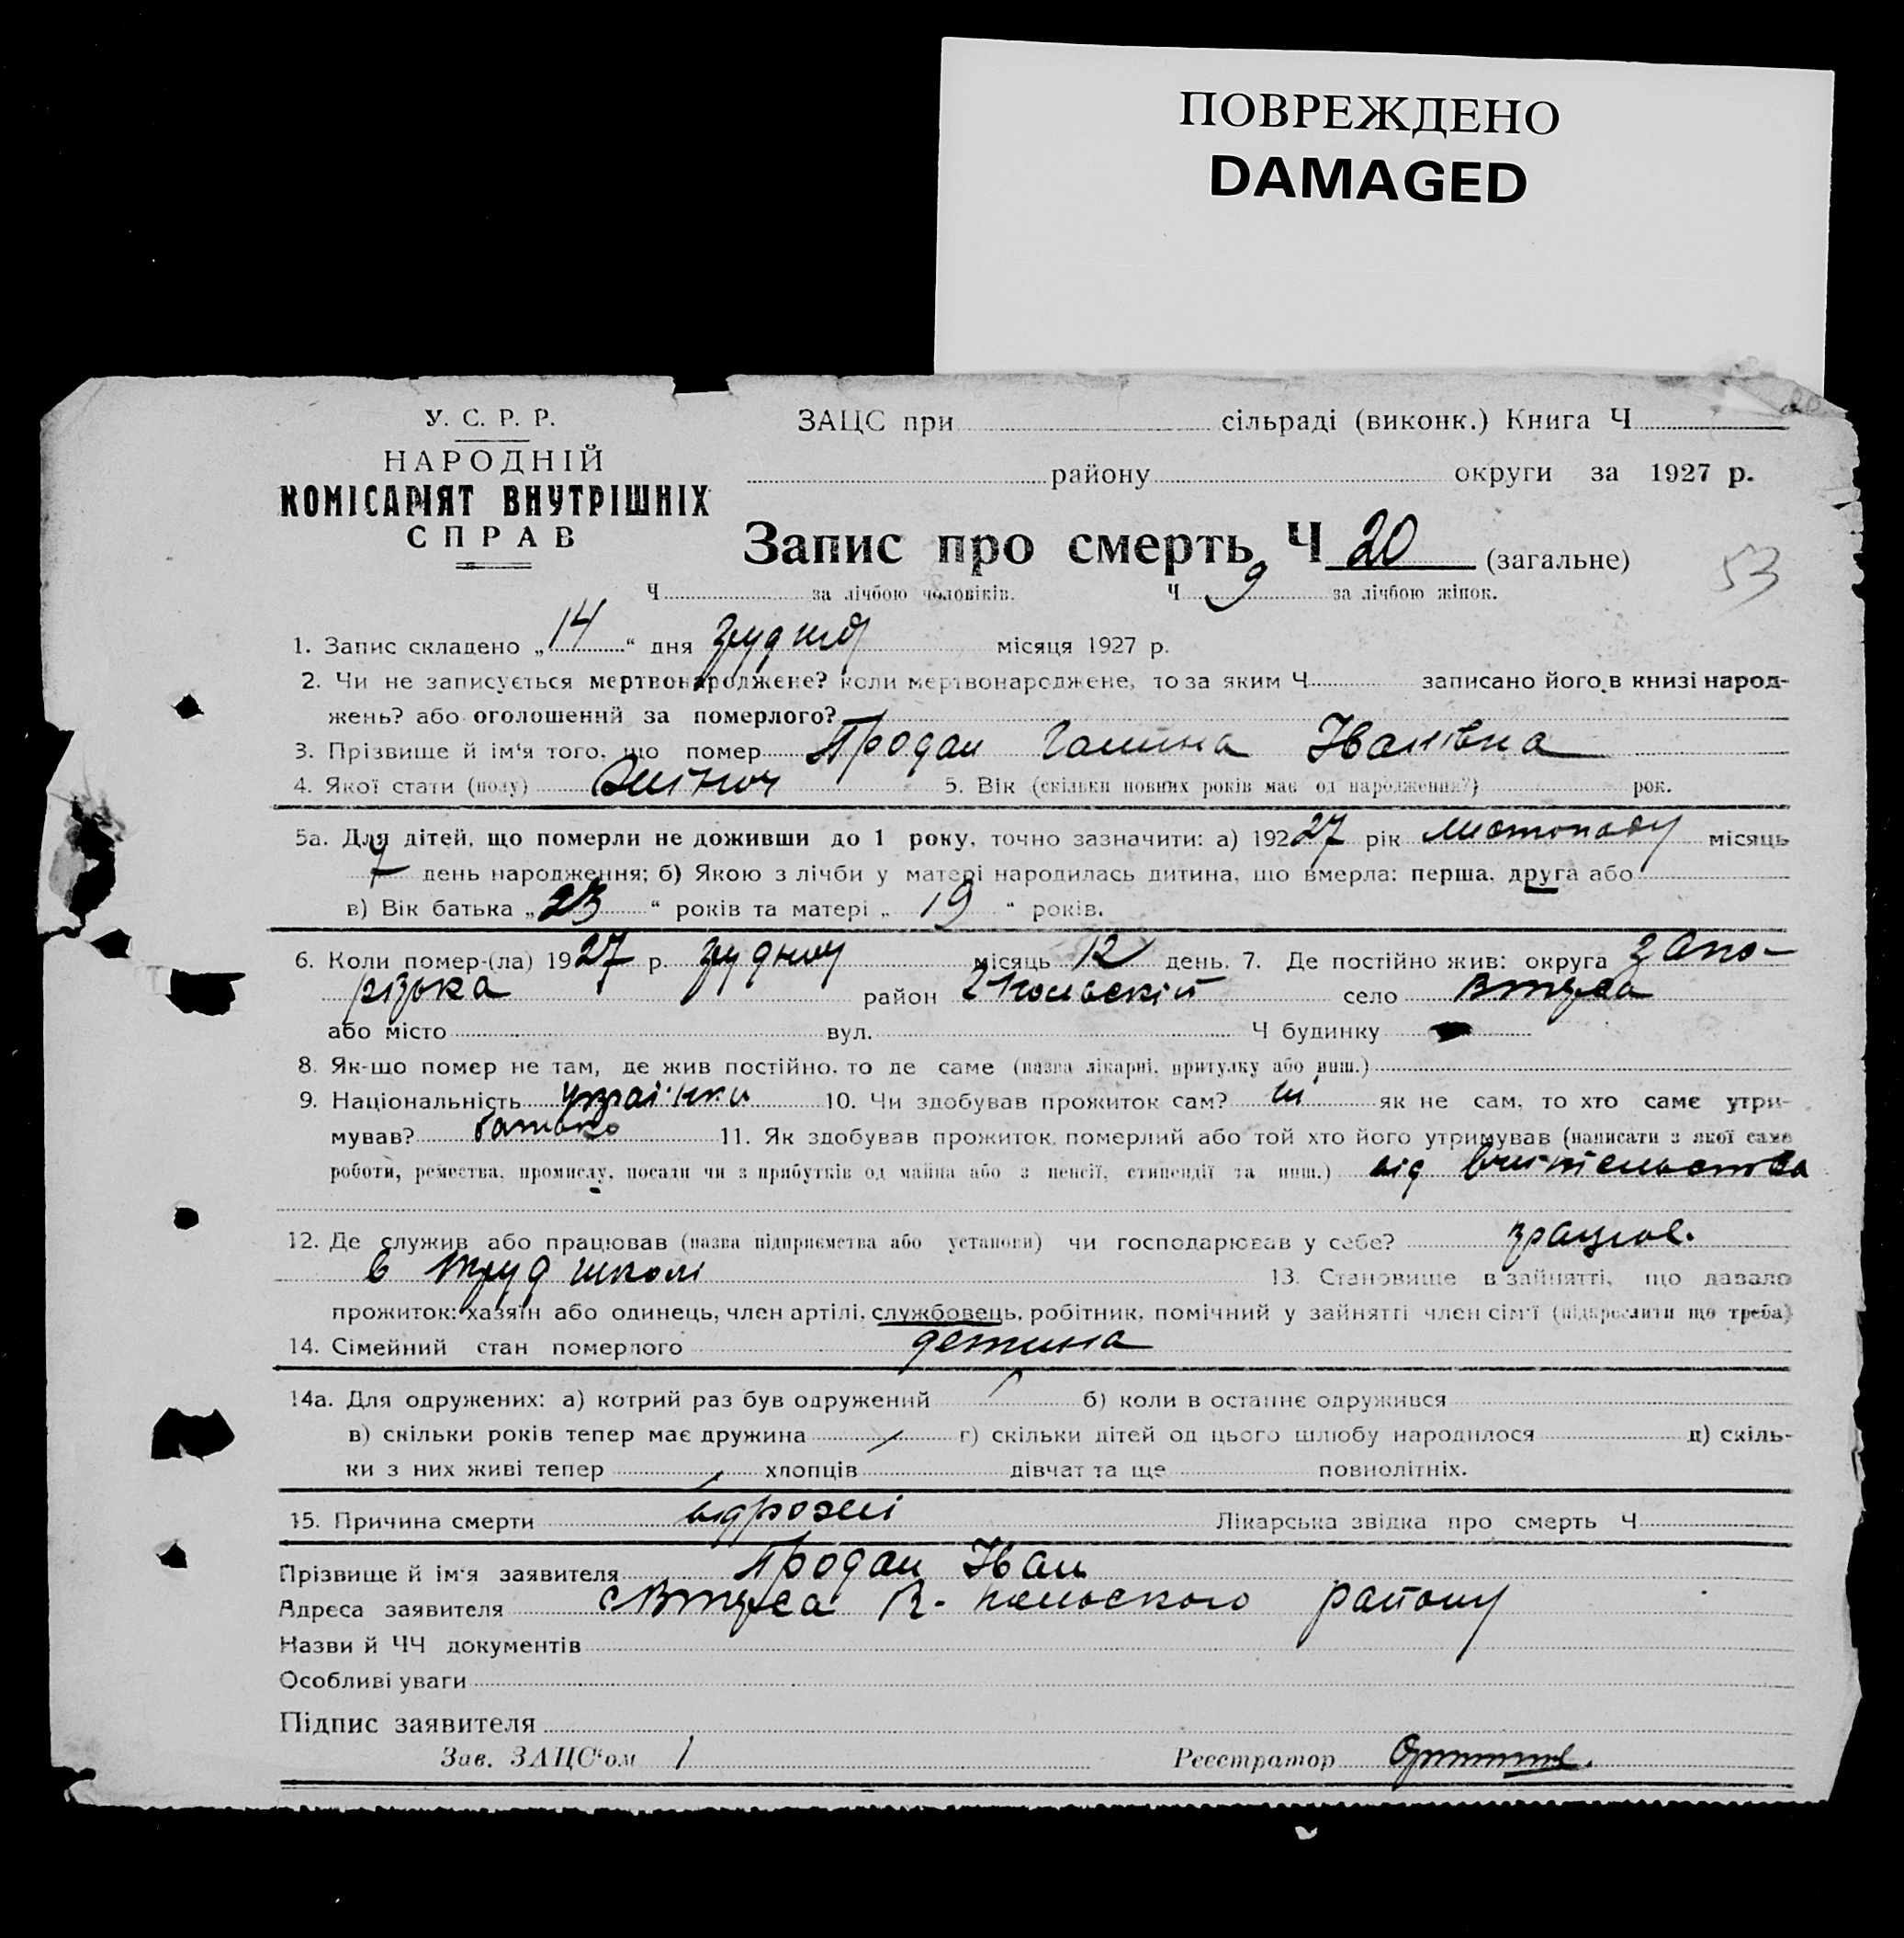 ПОВРЕЖДЕНО
DAMAGED
У. С. Р. Р.
НАРОДНІЙ
КОМІСАРІЯТ ВНУТРІШНІХ
СПРАВ
ЗАЦС при сільраді (виконк.) Книга Ч
району округи за 1927 р.
Запис про смерть Ч 20 (загальне)
53
Ч за лічбою чоловіків. Ч 9 за лічбою жінок.
1. Запис складено „14“ дня грудня місяця 1927 р.
2. Чи не записується мертвонароджене? коли мертвонароджене, то за яким Ч записано його в книзі народ-
жень? або оголошений за померлого?
3. Прізвище й ім'я того, що помер Продан Галина Іванівна
4. Якої статі (полу) жіночої 5. Вік (скільки повних років має од народження?) рок.
5а. Для дітей, що померли не доживши до 1 року, точно зазначити: а) 19227 рік листопаду місяць
7 день народження; б) Якою з лічби у матері народилась дитина, що вмерла: перша, друга або
в) Вік батька „23“ років та матері „19“ років.
6. Коли помер-(ла) 1927 р. грудню місяць 12 день. 7. Де постійно жив: округа Запо-
різька район село
або місто вул. Ч будинку
8. Як-що помер не там, де жив постійно, то де саме (назва лікарні, притулку або инш.)
9. Національність українка 10. Чи здобував прожиток сам? ні як не сам, то хто саме утри-
мував? батько 11. Як здобував прожиток померлий або той хто його утримував (написати з якої саме
роботи, ремества, промислу, посади чи з прибутків од майна або з пенсії, стипендії та инш.) від вчительства
12. Де служив або працював (назва підприємства або установи) чи господарював у себе? працює.
в труд школі 13. Становище в зайнятті, що давало
прожиток: хазяїн або одинець, член артілі, службовець, робітник, помічний у зайнятті член сім'ї (підкреслити що треба)
14. Сімейний стан померлого детина
14а. Для одружених: а) котрий раз був одружений б) коли в останнє одружився
в) скільки років тепер має дружина г) скільки дітей од цього шлюбу народилося д) скіль-
ки з них живі тепер хлопців дівчат та ще повнолітніх.
15. Причина смерти Лікарська звідка про смерть Ч
Прізвище й ім'я заявителя Продан Іван
Адреса заявителя району
Назви й ЧЧ документів
Особливі уваги
Підпис заявителя
Зав. ЗАЦС'ом Реєстратор